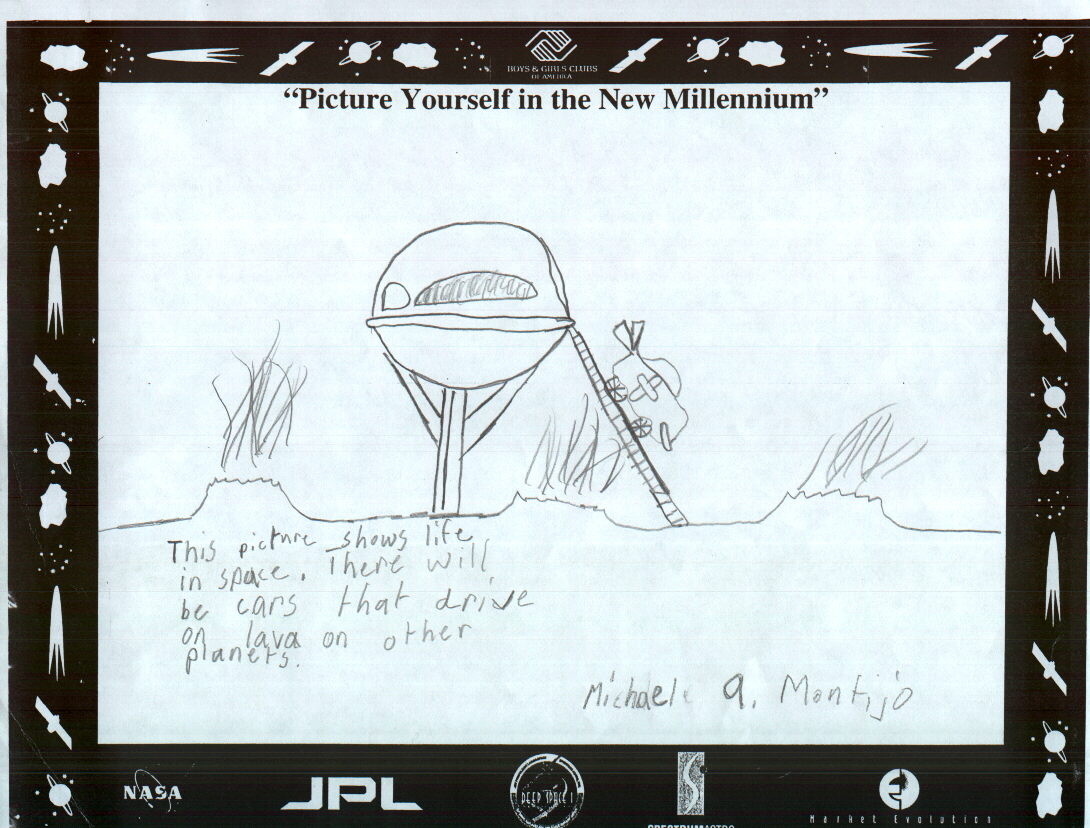 BOYS & GIRLS CLUBS
OF AMERICA
"Picture Yourself in the New Millennium"
This picture shows life
in space. There will
be cars that drive
on lava on other
planets.
Michael A. Montijo
NASA
JPL
DEEP SPACE 1
SPECTRUMASTRO
Market Evolution